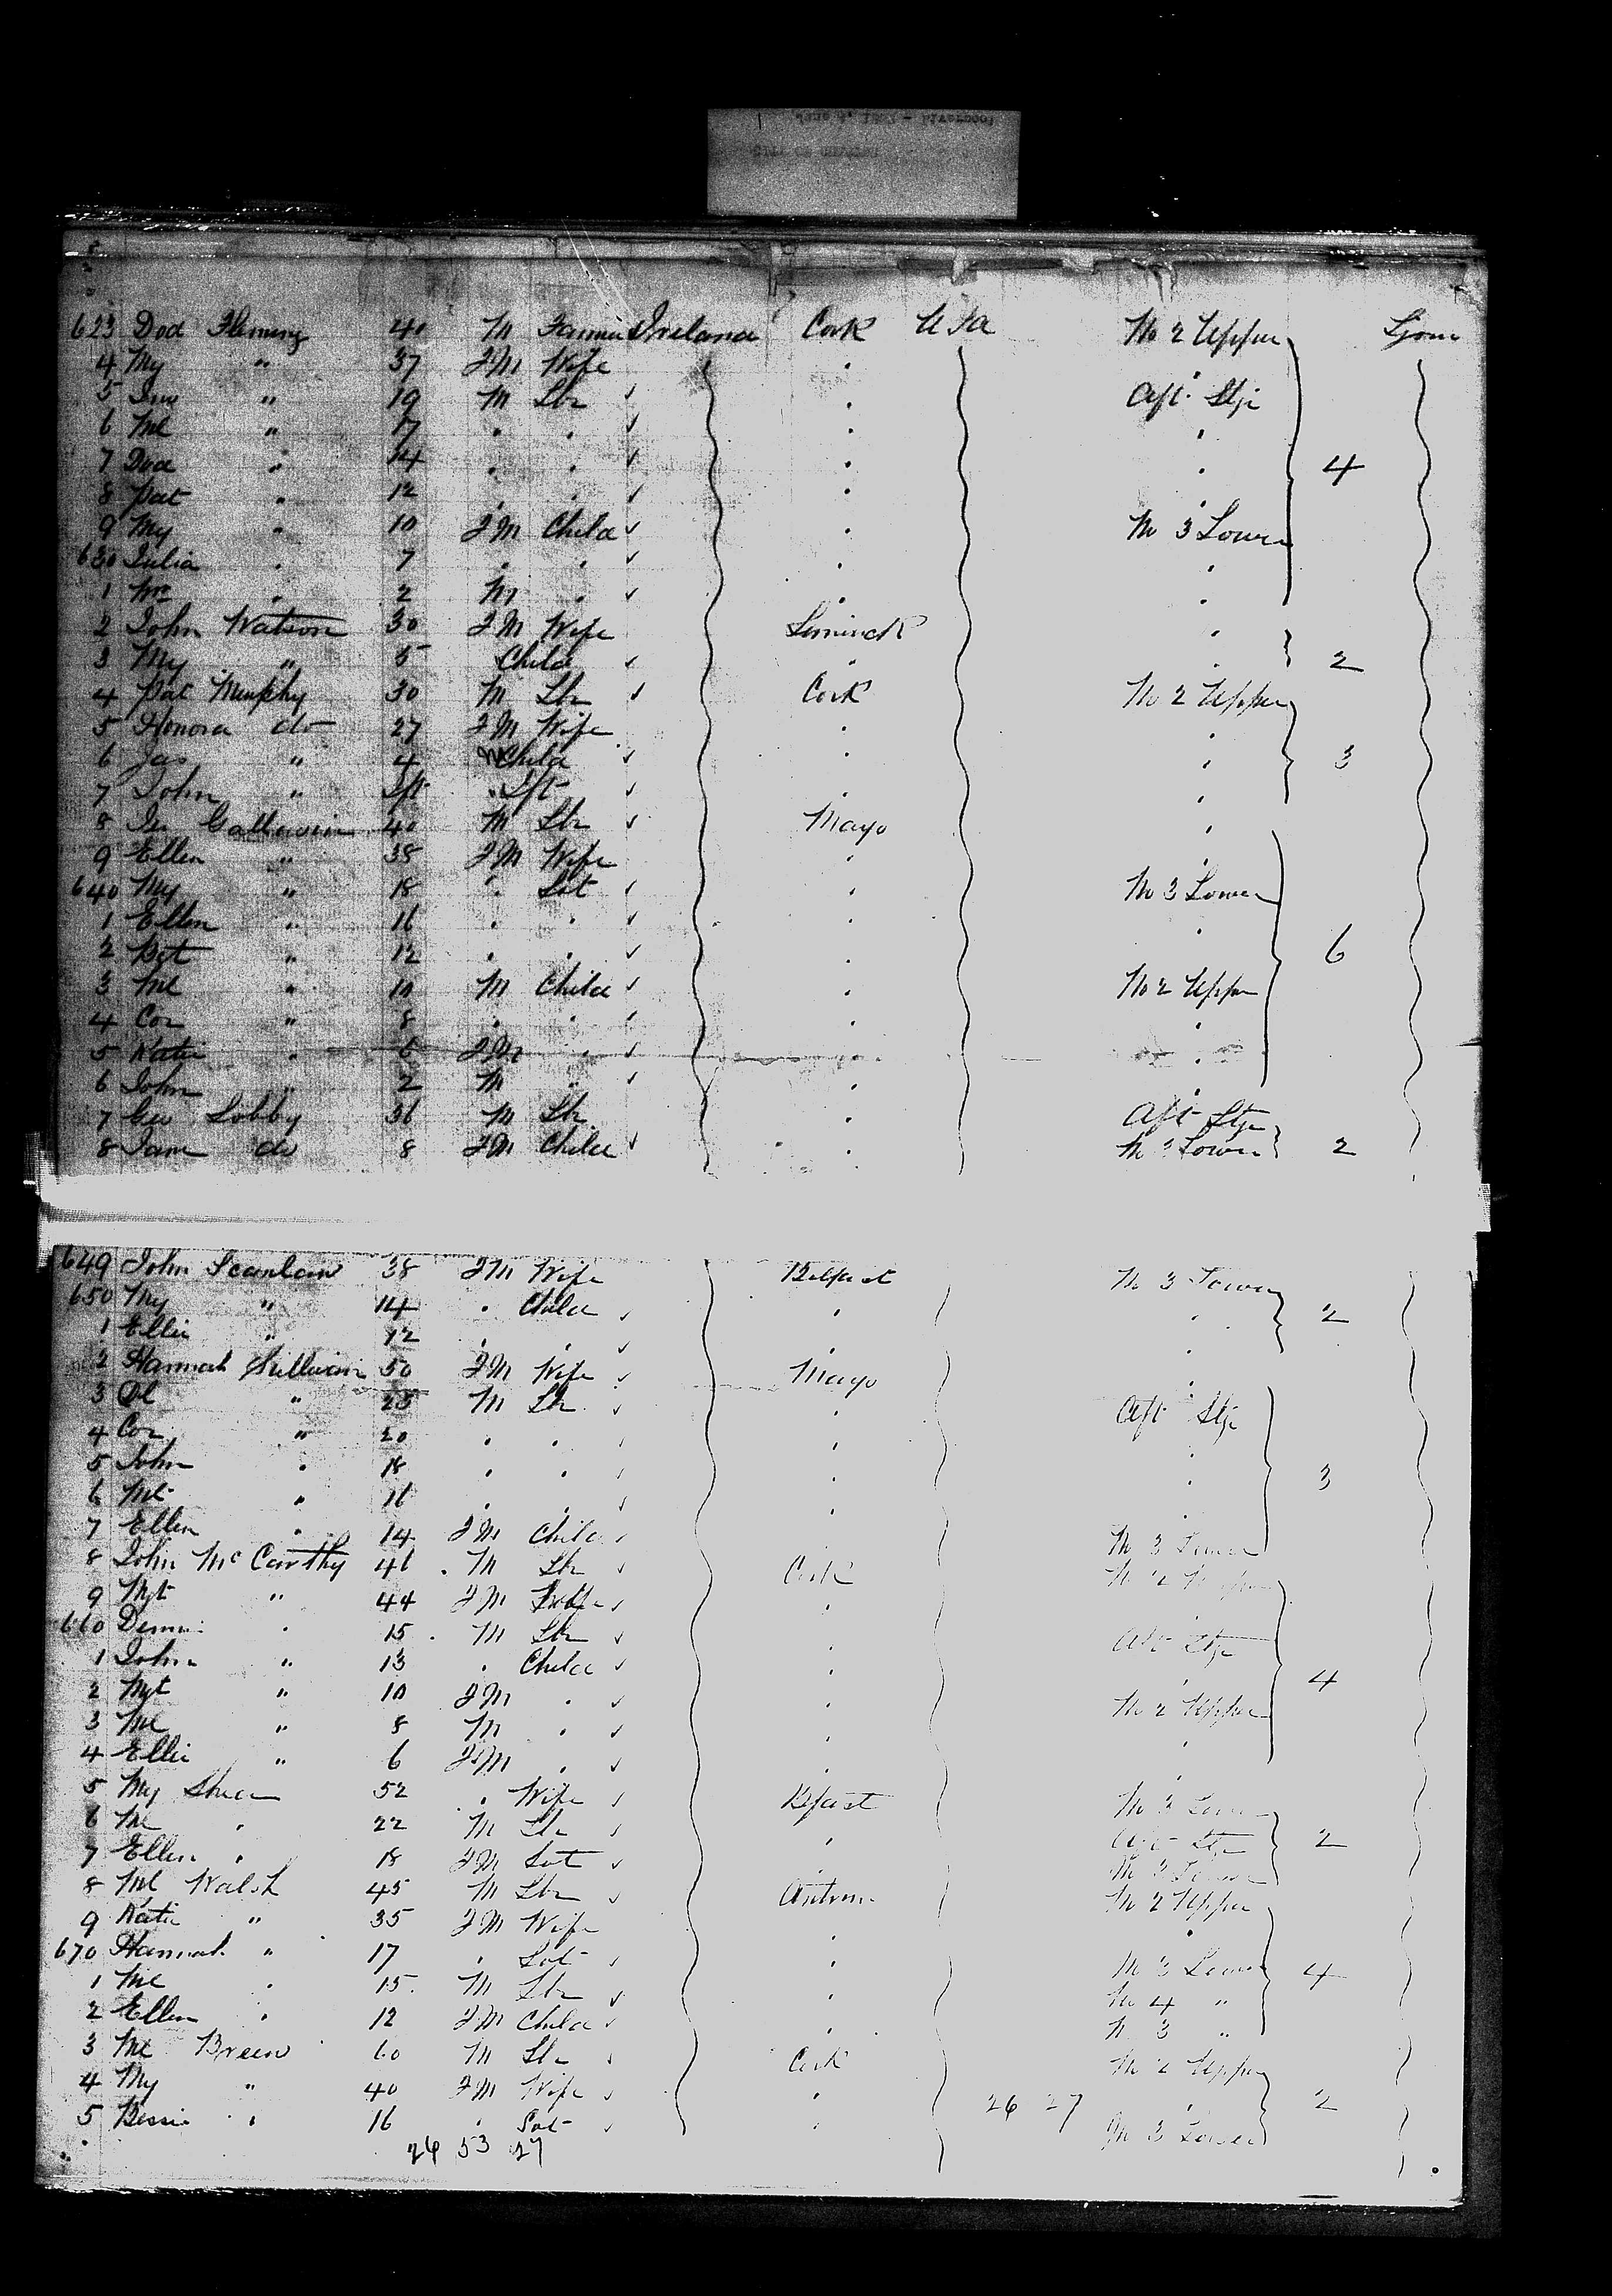 623 Dod Fleming 40 M Farmer Ireland Cork USa No 2 Upper Sjour
4 My " 37 FM Wife
5 Jno " 19 M Lbr Aft Stge
6 Ml " 17
7 Dod " 14 4
8 Pat " 12
9 My " 10 FM Child No 3 Lower
630 Julia 7
1 Wm 2 M
2 John Watson 30 FM Wife Limerick
3 My " 5 Child 2
4 Pat Murphy 30 M Lbr Cork No 2 Upper
5 Honora do 27 FM Wife
6 Jas " 4 M Child 3
7 John " Ift Ift
8 40 M Lbr Mayo
9 Ellen " 38 FM Wife
640 My " 18 Sst No 3 Lower
1 Ellen " 16
2 Bgt " 12 6
3 Ml " 10 M Child No 2 Upper
4 Cor " 8
5 Katie 6 FM
6 John " 2 M
7 Geo Lobby 36 M Lbr Aft Stge
8 Jane do 8 FM Child No 3 Lower 2
649 John Scanlan 38 FM Wife Belfast No 3 Lower
650 My " 14 Child 2
1 Ellie " 12
2 Hannah Sullivan 50 FM Wife Mayo
3 Dl " 25 M Lbr Aft Stge
4 Cor " 20
5 John 18 3
6 Ml 16
7 Ellen 14 FM Child No 3 Lower
8 John McCarthy 46 M Lbr Cork No 2 Upper
9 Mgt " 44 FM Wife
660 Dennis 15 M Lbr Aft Stge
1 John " 13 Child
2 Mgt " 10 FM No 2 Upper 4
3 Ml " 8 M
4 Ellie " 6 FM
5 My Shea 52 Wife Belfast No 3 Lower
6 Ml 22 M Lbr Aft Stge 2
7 Ellen 18 FM Sst No 3 Lower
8 Ml Walsh 45 M Lbr Antrim No 2 Upper
9 Katie " 35 FM Wife
670 Hannah " 17 Sst No 3 Lower 4
1 Ml 15 M Lbr No 4 "
2 Ellen 12 FM Child No 3 "
3 Ml Breen 60 M Lbr Cork No 2 Upper
4 My " 40 FM Wife 26 27 2
5 Bessie 16 Sst No 3 Lower
26 53 27